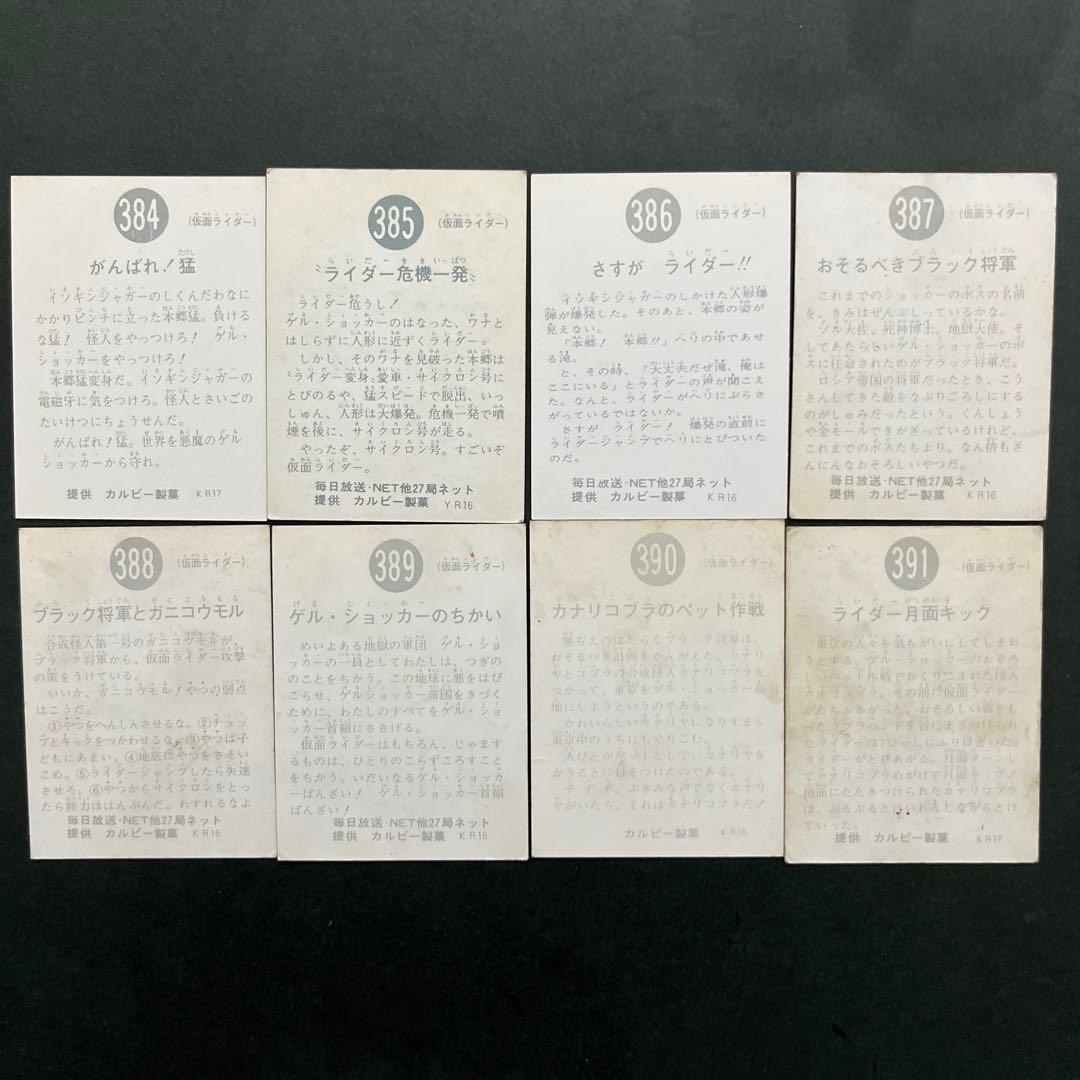 384
(仮面ライダー)
がんばれ!猛
イソギンジャガーのしくんだわなに
かかりピンチに立った本郷猛。負ける
な猛! 怪人をやっつけろ! ゲル・
ショッカーをやっつけろ!
本郷猛変身だ。イソギンジャガーの
電磁牙に気をつけろ。怪人とさいごの
たいけつにちょうせんだ。
がんばれ!猛。世界を悪魔のゲル
ショッカーから守れ。
提供 カルビー製菓 KR17
385
(仮面ライダー)
〝ライダー危機一発〟
ライダー危うし!
ゲル・ショッカーのはなった、ワナと
はしらずに人形に近ずくライダー。
しかし、そのワナを見破った本郷は
〝ライダー変身〟愛車・サイクロン号に
とびのるや、猛スピードで脱出、いっ
しゅん、人形は大爆発。危機一発で噴
煙を後に、サイクロン号が走る。
やったぞ、サイクロン号。すごいぞ
仮面ライダー。
毎日放送・NET他27局ネット
提供 カルビー製菓 YR16
386
(仮面ライダー)
さすが ライダー!!
イソギンジャガーのしかけた人形爆
弾が爆発した。そのあと、本郷の姿が
見えない。
「本郷! 本郷!!」ヘリの中であせ
る滝。
と、その時、「大丈夫だぜ滝、俺は
ここにいる」とライダーの声が聞こえ
た。なんと、ライダーがヘリにぶらさ
がっているではないか。
さすが ライダー! 爆発の直前に
ライダージャンプでヘリにとびついた
のだ。
毎日放送・NET他27局ネット
提供 カルビー製菓 KR16
387
(仮面ライダー)
おそるべきブラック将軍
これまでのショッカーのボスの名前
を、きみはぜんぶしっているかな。
ゾル大佐。死神博士、地獄大使。そ
してあたらしいゲル・ショッカーのボ
スに任命されたのがブラック将軍だ。
ロシア帝国の将軍だったとき、こう
さんしてきた敵をなぶりごろしにする
のがしゅみだったという。くんしょう
や金モールでかざっているけれど、
これまでのボスたちより、なん倍もざ
んにんなおそろしいやつだ。
毎日放送・NET他27局ネット
提供 カルビー製菓 KR16
388
(仮面ライダー)
ブラック将軍とガニコウモル
合成怪人第一号のガニコウモルが、
ブラック将軍から、仮面ライダー攻撃
の策をうけている。
いいか、ガニコウモル!やつの弱点
はこうだ。
①やつをへんしんさせるな。②チョッ
プとキックをつかわせるな。③やつは子
どもにあまい。④地底にやつをさそい
こめ。⑤ライダージャンプしたら失速
させろ。⑥やつからサイクロンをとっ
たら能力ははんぶんだ。わすれるなよ
毎日放送・NET他27局ネット
提供 カルビー製菓 KR16
389
(仮面ライダー)
ゲル・ショッカーのちかい
めいよある地獄の軍団 ゲル・ショ
ッカーの一員としてわたしは、つぎの
のことをちかう。この地球に悪をはび
こらせ、ゲルショッカー帝国をきづく
ために、わたしのすべてをゲル・ショ
ッカー首領にささげる。
仮面ライダーはもちろん、じゃます
るものは、ひとりのこらずころすこと
をちかう。いだいなるゲル・ショッカ
ーばんざい! ゲル・ショッカー首領
ばんざい!
毎日放送・NET他27局ネット
提供 カルビー製菓 KR16
390
(仮面ライダー)
カナリコブラのペット作戦
悪ぢえのはたらくブラック将軍は、
おそるべき計画をかんがえた。カナリ
ヤとコブラの合成怪人カナリコブラを
つかって、東京をゲルショッカー基
地にしようというのである。
かわいらしいカナリヤになりすまし
東京中のうちにもやりこむ。
人びとがペットとして、カナリヤを
かうことに目をつけたのである。
ナ、ナ、ナ、ぶきみな声でなくカナリ
ヤがいたら、それはカナリコブラだ!
カルビー製菓 KR16
391
(仮面ライダー)
ライダー月面キック
東京の人々を気ちがいにしてしまお
うとする、ゲル・ショッカーのおそろ
しいペット作戦でおくりこまれた怪人
カナリコブラ。その前に仮面ライダー
がたちふさがった。おそろしい毒をも
ライダーがとびあがる。月面ターンし
てカナリコブラめがけて月面キック!
地面にたたきつけられたカナリコブラ
は、ぶるぶるとけいれんしながらとけ
ていった。
提供 カルビー製菓 KR17